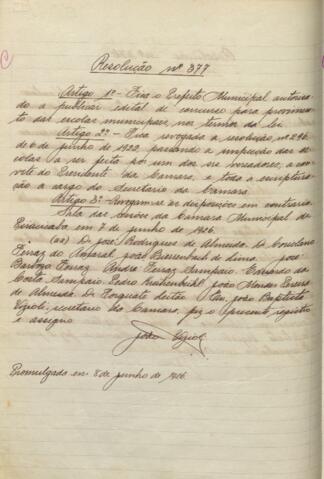 Resolução nº 377
Artigo 1º - Fica o Prefeito Municipal autorisa-
do a publicar edital de concurso para provimen-
to das escolas municipaes nos termos da lei
Artigo 2º - Fica revogada a resolução nº 296
de 6 de junho de 1922, passando a inspeção das es-
colas a ser feita por um dos srs. vereadores, a con-
vite do Presidente da Camara, e toda a escriptura-
ção a cargo do Secretario da Camara.
Artigo 3º - Revogam-se as disposições em contrario.
Sala das Sessões da Camara Municipal de
Piracicaba em 7 de junho de 1926.
(aa) Dr José Rodrigues de Almeida. Dr Coriolano
Ferraz do Amaral. João Bierrenbach de Lima. José
Barbosa Ferraz. André Ferraz Sampaio. Eduardo da
Costa Sampaio. Pedro Krahenbuhl. João Mendes Pereira
de Almeida. Dr Torquato Leitão. Eu, João Baptista
Vizioli, secretario da Camara, fiz o presente registro
e assigno
João Vizioli
Promulgada em 8 junho de 1926.